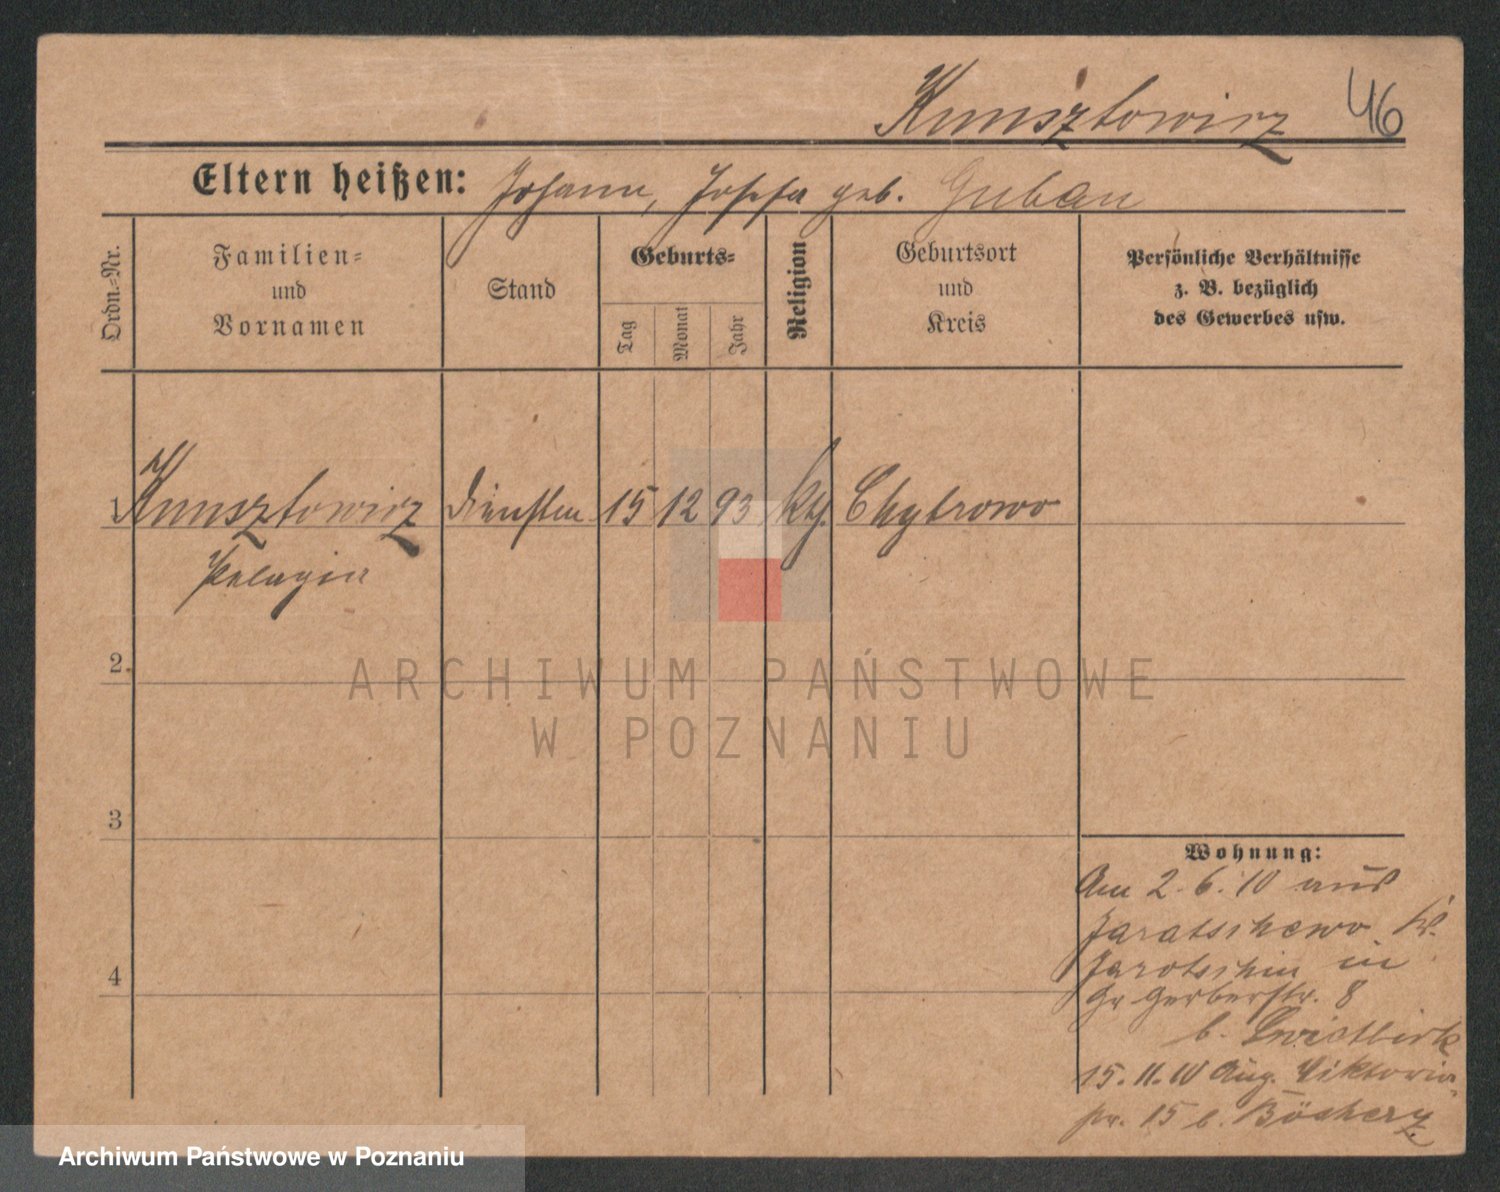 Kunsztowicz 46
Eltern heißen: Johann, Josefa geb. Guban
Ordn.-Nr.
Familien-
und
Vornamen
Stand
Geburts-
Tag
Monat
Jahr
Religion
Geburtsort
und
Kreis
Persönliche Verhältnisse
z. B. bezüglich
des Gewerbes usw.
1 Kunsztowicz 15 12 93 kth. Chytrowo
Pelagia
2.
3
4
Wohnung:
Am 2.6.10 aus
Jaratschewo Kr.
Jarotschin in
Gr Gerberstr. 8
b.
15.11.10 Aug. Viktoria
15 b.
ARCHIWUM PAŃSTWOWE
W POZNANIU
Archiwum Państwowe w Poznaniu